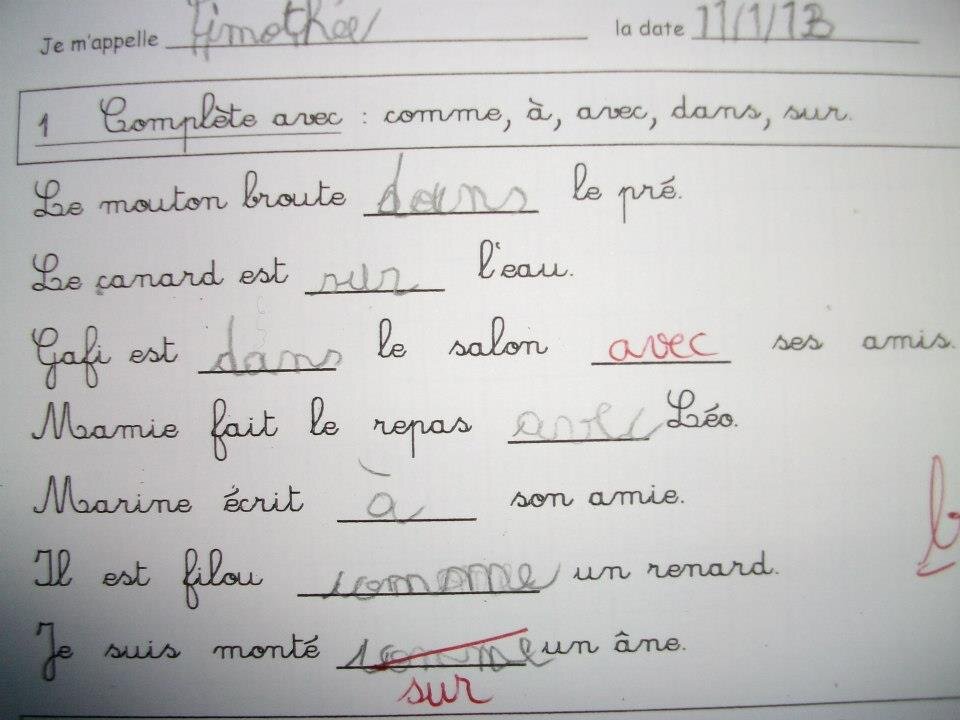 Je m'appelle Timothée la date 11/1/13
1 Complète avec : comme, à, avec, dans, sur.
Le mouton broute dans le pré.
Le canard est sur l'eau.
Gafi est dans le salon avec ses amis.
Mamie fait le repas avec Léo.
Marine écrit à son amie.
Il est filou comome un renard.
Je suis monté comme un âne.
sur